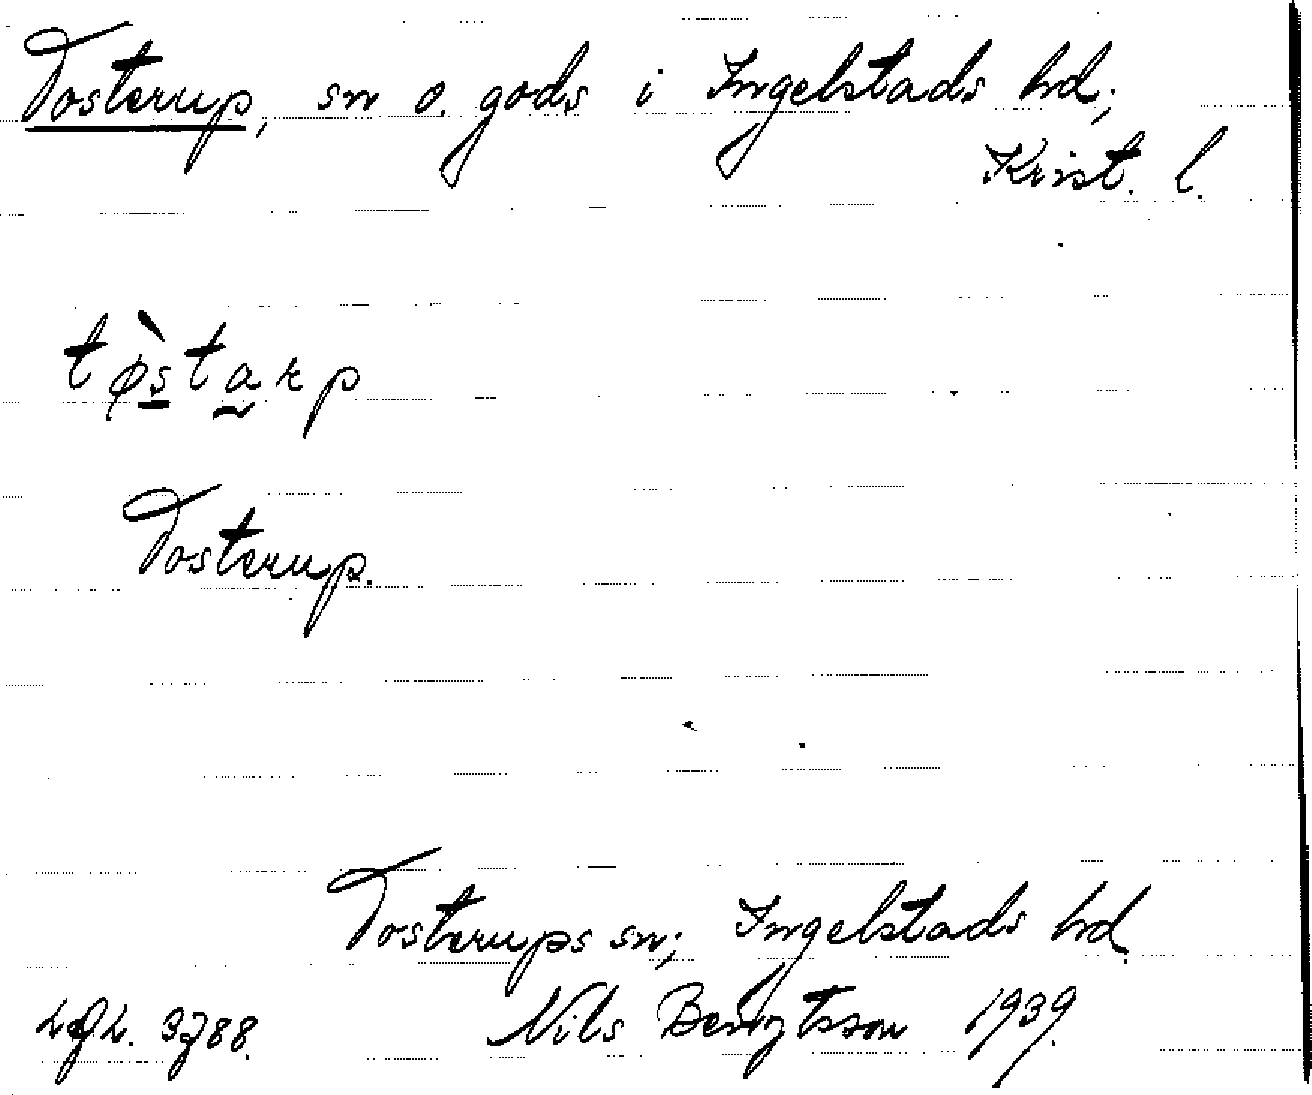 Tosterup, sn o. gods i Ingelstads hd;
Krist. l.
tø̀starp
Tosterup.
Tosterups sn; Ingelstads hd.
Nils Bengtsson 1939.